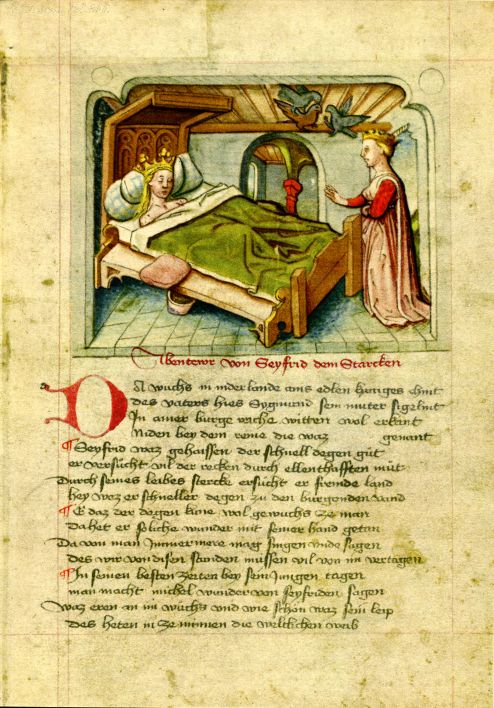 Abentewr von Seyfrid dem Starcken
DA wuchs in niderlande ains edlen kuniges chint
des vaters hies Sygmund sein muter Sigelint
In ainer burge reiche witten wol erkant
Niden bey dem reine die waz genant
Seyfrid waz gehaissen der schnell degen gut
er versucht vil der recken durch ellenthafften mut
Durch seines leibes stercke ersucht er fremde land
hey waz er schneller degen zu den burgonden vand
E daz der degen küne wol gewuchs ze man
Da het er soliche wunder mit seiner hand getan
Da von man immermere mag singen unde sagen
des wir von disen stunden müssen vil von im vertagen
In seinen besten zeiten bey sein Jungen tagen
man macht michel wunder von Seyfriden sagen
Waz eren an im wuchs und wie schön waz sein leip
des heten in ze minnen die weltlichen weib